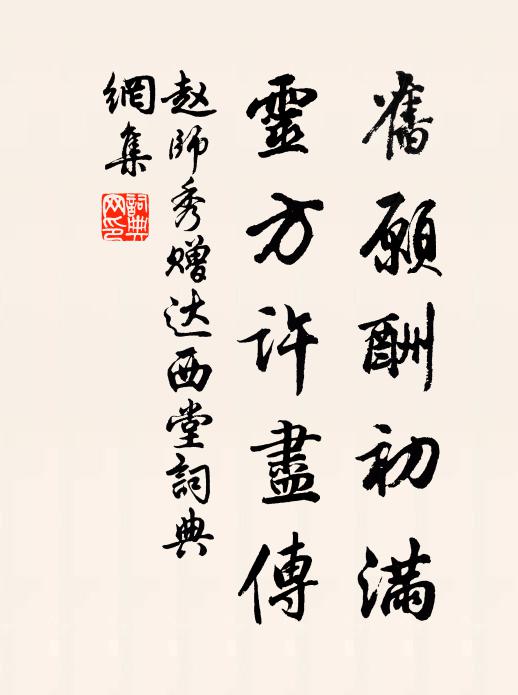 舊願酬初滿
靈方許盡傳
赵師秀赠达西堂詞典
網集
詞典
网印